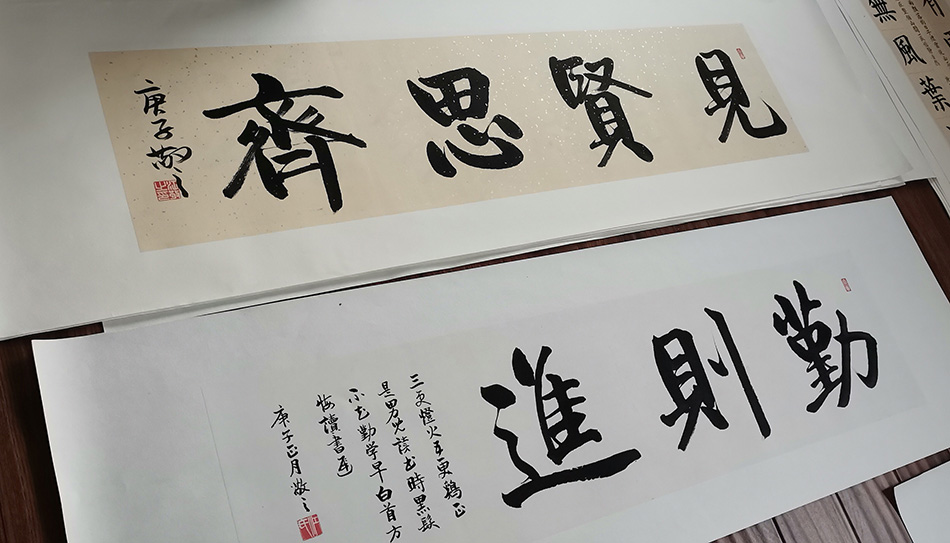 見賢思齊
庚子敬之
勤則進
三更燈火五更鷄正
是男兒讀書時黑髮
不知勤学早白首方
悔讀書遲
庚子正月敬之
無風葉